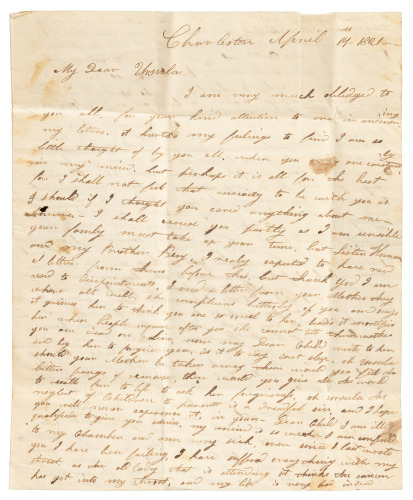 Charleston April 14th 1821
My Dear Ursula
I am very much obliged to
you all, for your kind attention to me in answering
my letters, it hurts my feelings to find I am so
little thought of by you all, when you are constantly
in my mind, but perhaps it is all for the best
for I shall not feel that anxiety to be with you as
I should if I thought you cared anything about me
I shall excuse you partly as I am sensible
your family must take up your time, but Sister
and my Brother I really expected to have
a letter from them before this, but thank God I am
used to disappointments, I had a letter from your Mother they
where all well, she complains bitterly of you and says
it grieves her to think you are so cruel to her, besides it mortifies
her when People inquire after you she cannot tell
you are now my Dear Child write to her
and beg her to forgive you, as it is
should your Mother be taken away then would you feel the
bitter pangs of remorse, then would you give all the world
to recall her to life to ask her forgiveness, oh Ursula the
neglect of Children to Parents is a dreadful sin, and I hope
you will never experience it, in Dear Child I am ill
qualified to give you advice, my mind is so weak I am confined
to my Chamber and am very sick, ever since I last wrote
you I have been failing, I have suffered every thing with my
as the old Lady that is attending it thinks the cancer
has got into my and my life is very bad indeed